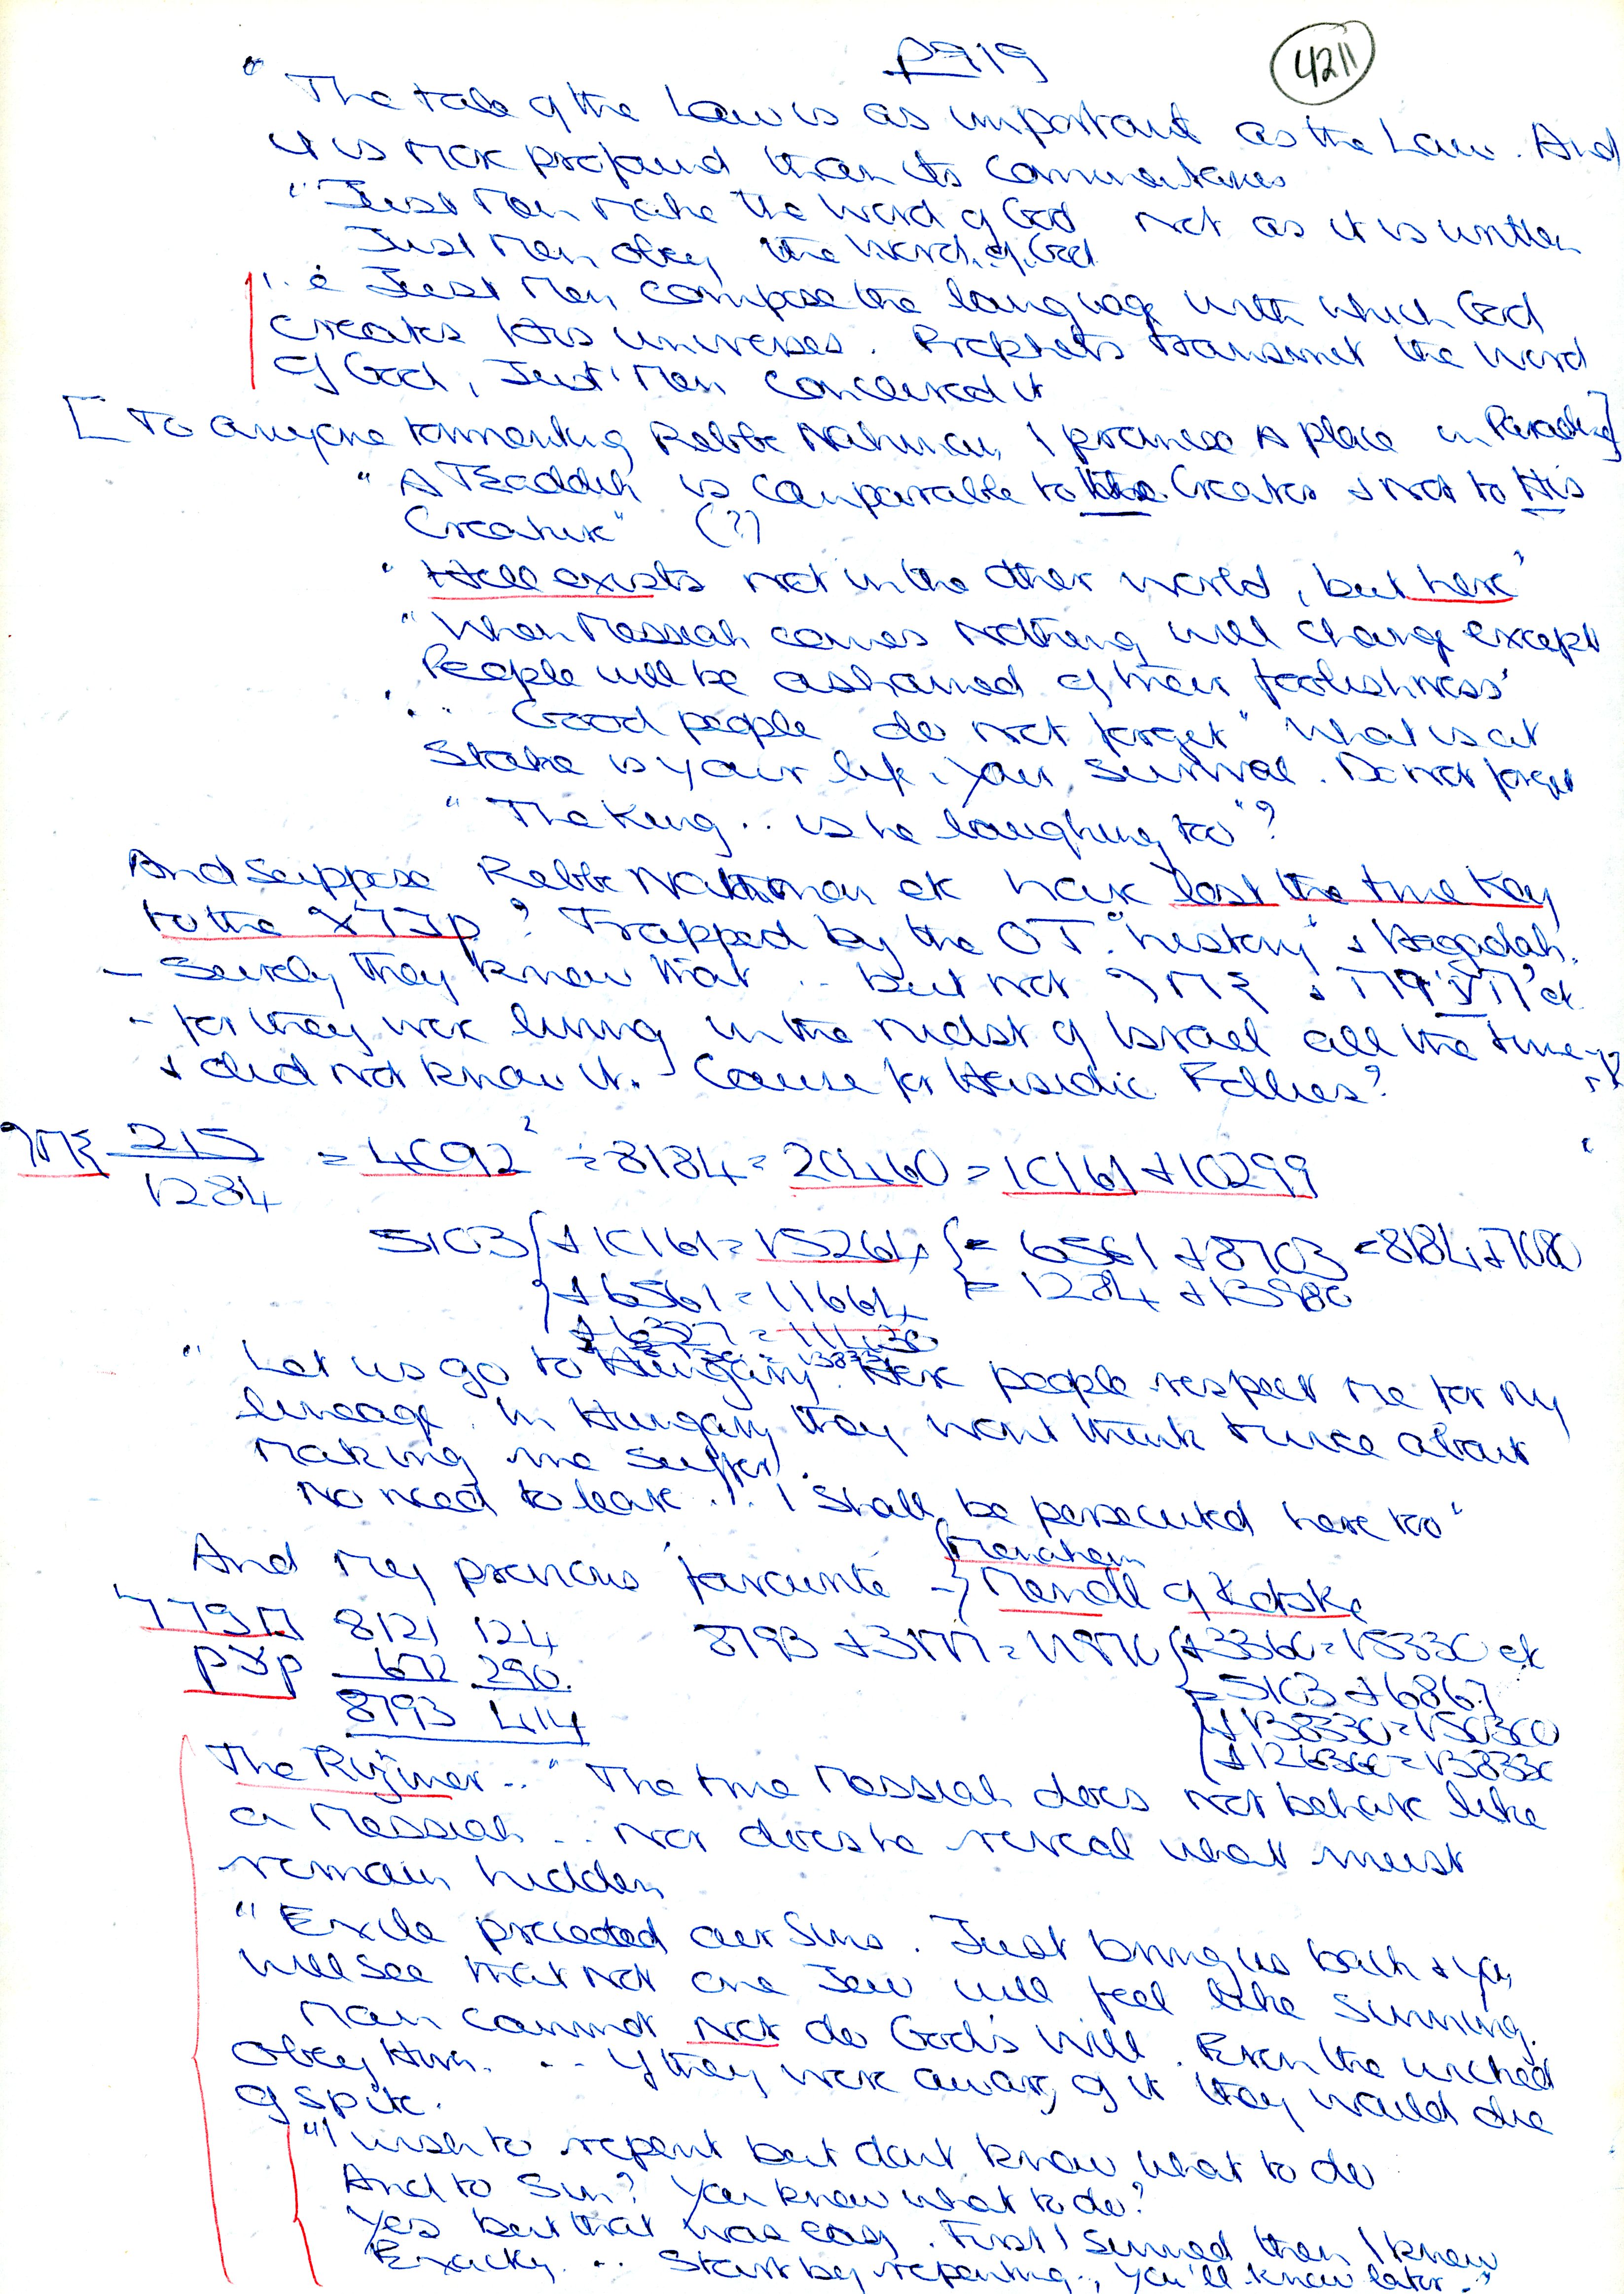 P919
4211
" The tale of the Law is as important as the Law. And
it is more profound than its commentaries
"Just Men make the Word of God not as it is written
Just Men obey the Word of God
i.e Just Men compose the language with which God
creates His universes. Prophets transmit the word
of God, Just Men conceived it
[To anyone tormenting Rebbe Nahman, I promise A place in Paradise]
" A Tzaddik is comparable to the Creator & not to His
Creature" (?)
" Hell exists not in the other world, but here"
"When Messiah comes nothing will change except
People will be ashamed of their foolishness"
" Good people do not forget" What is at
stake is your life, your survival. Do not forget
"The King .. is he laughing too"?
And suppose Rebbe Nahman etc have lost the true key
to the ? Trapped by the OT "history" & Hagadah.
– Surely they knew that .. but not & etc
– for they were living in the midst of Israel all the time
& did not know it. Cause for Hasidic Follies?
215
1284
= 4092² ÷ 8184 = 20460 = 10161 + 10299
5103 { + 10161 = 15264 { = 6561 + 8703 = 8184 + 7080
+ 6561 = 11664 = 1284 + 13980
+ 6327 = 11430
" Let us go to Hungary. Here people respect me for my
lineage. In Hungary they wont think twice about
making me suffer.
No need to leave ... I shall be persecuted here too"
And my previous favourite – { Menahem
Mendl of Kotzke
8121 124
672 290
8793 414
8793 + 3177 = 11970 { + 3360 = 15330 etc
= 5103 + 6867
The Rizhiner .. " The true Messiah does not behave like
a Messiah ... nor does he reveal what must
remain hidden
" Exile preceded our sins. Just bring us back & you
will see that not one Jew will feel like sinning.
Man cannot not do God's will. Even the wicked
obey Him. ... If they were aware of it they would die
of spite.
"I wish to repent but dont know what to do
And to Sin? You knew what to do?
Yes but that was easy. First I sinned then I knew
Exactly ... Start by repenting, you'll know later."